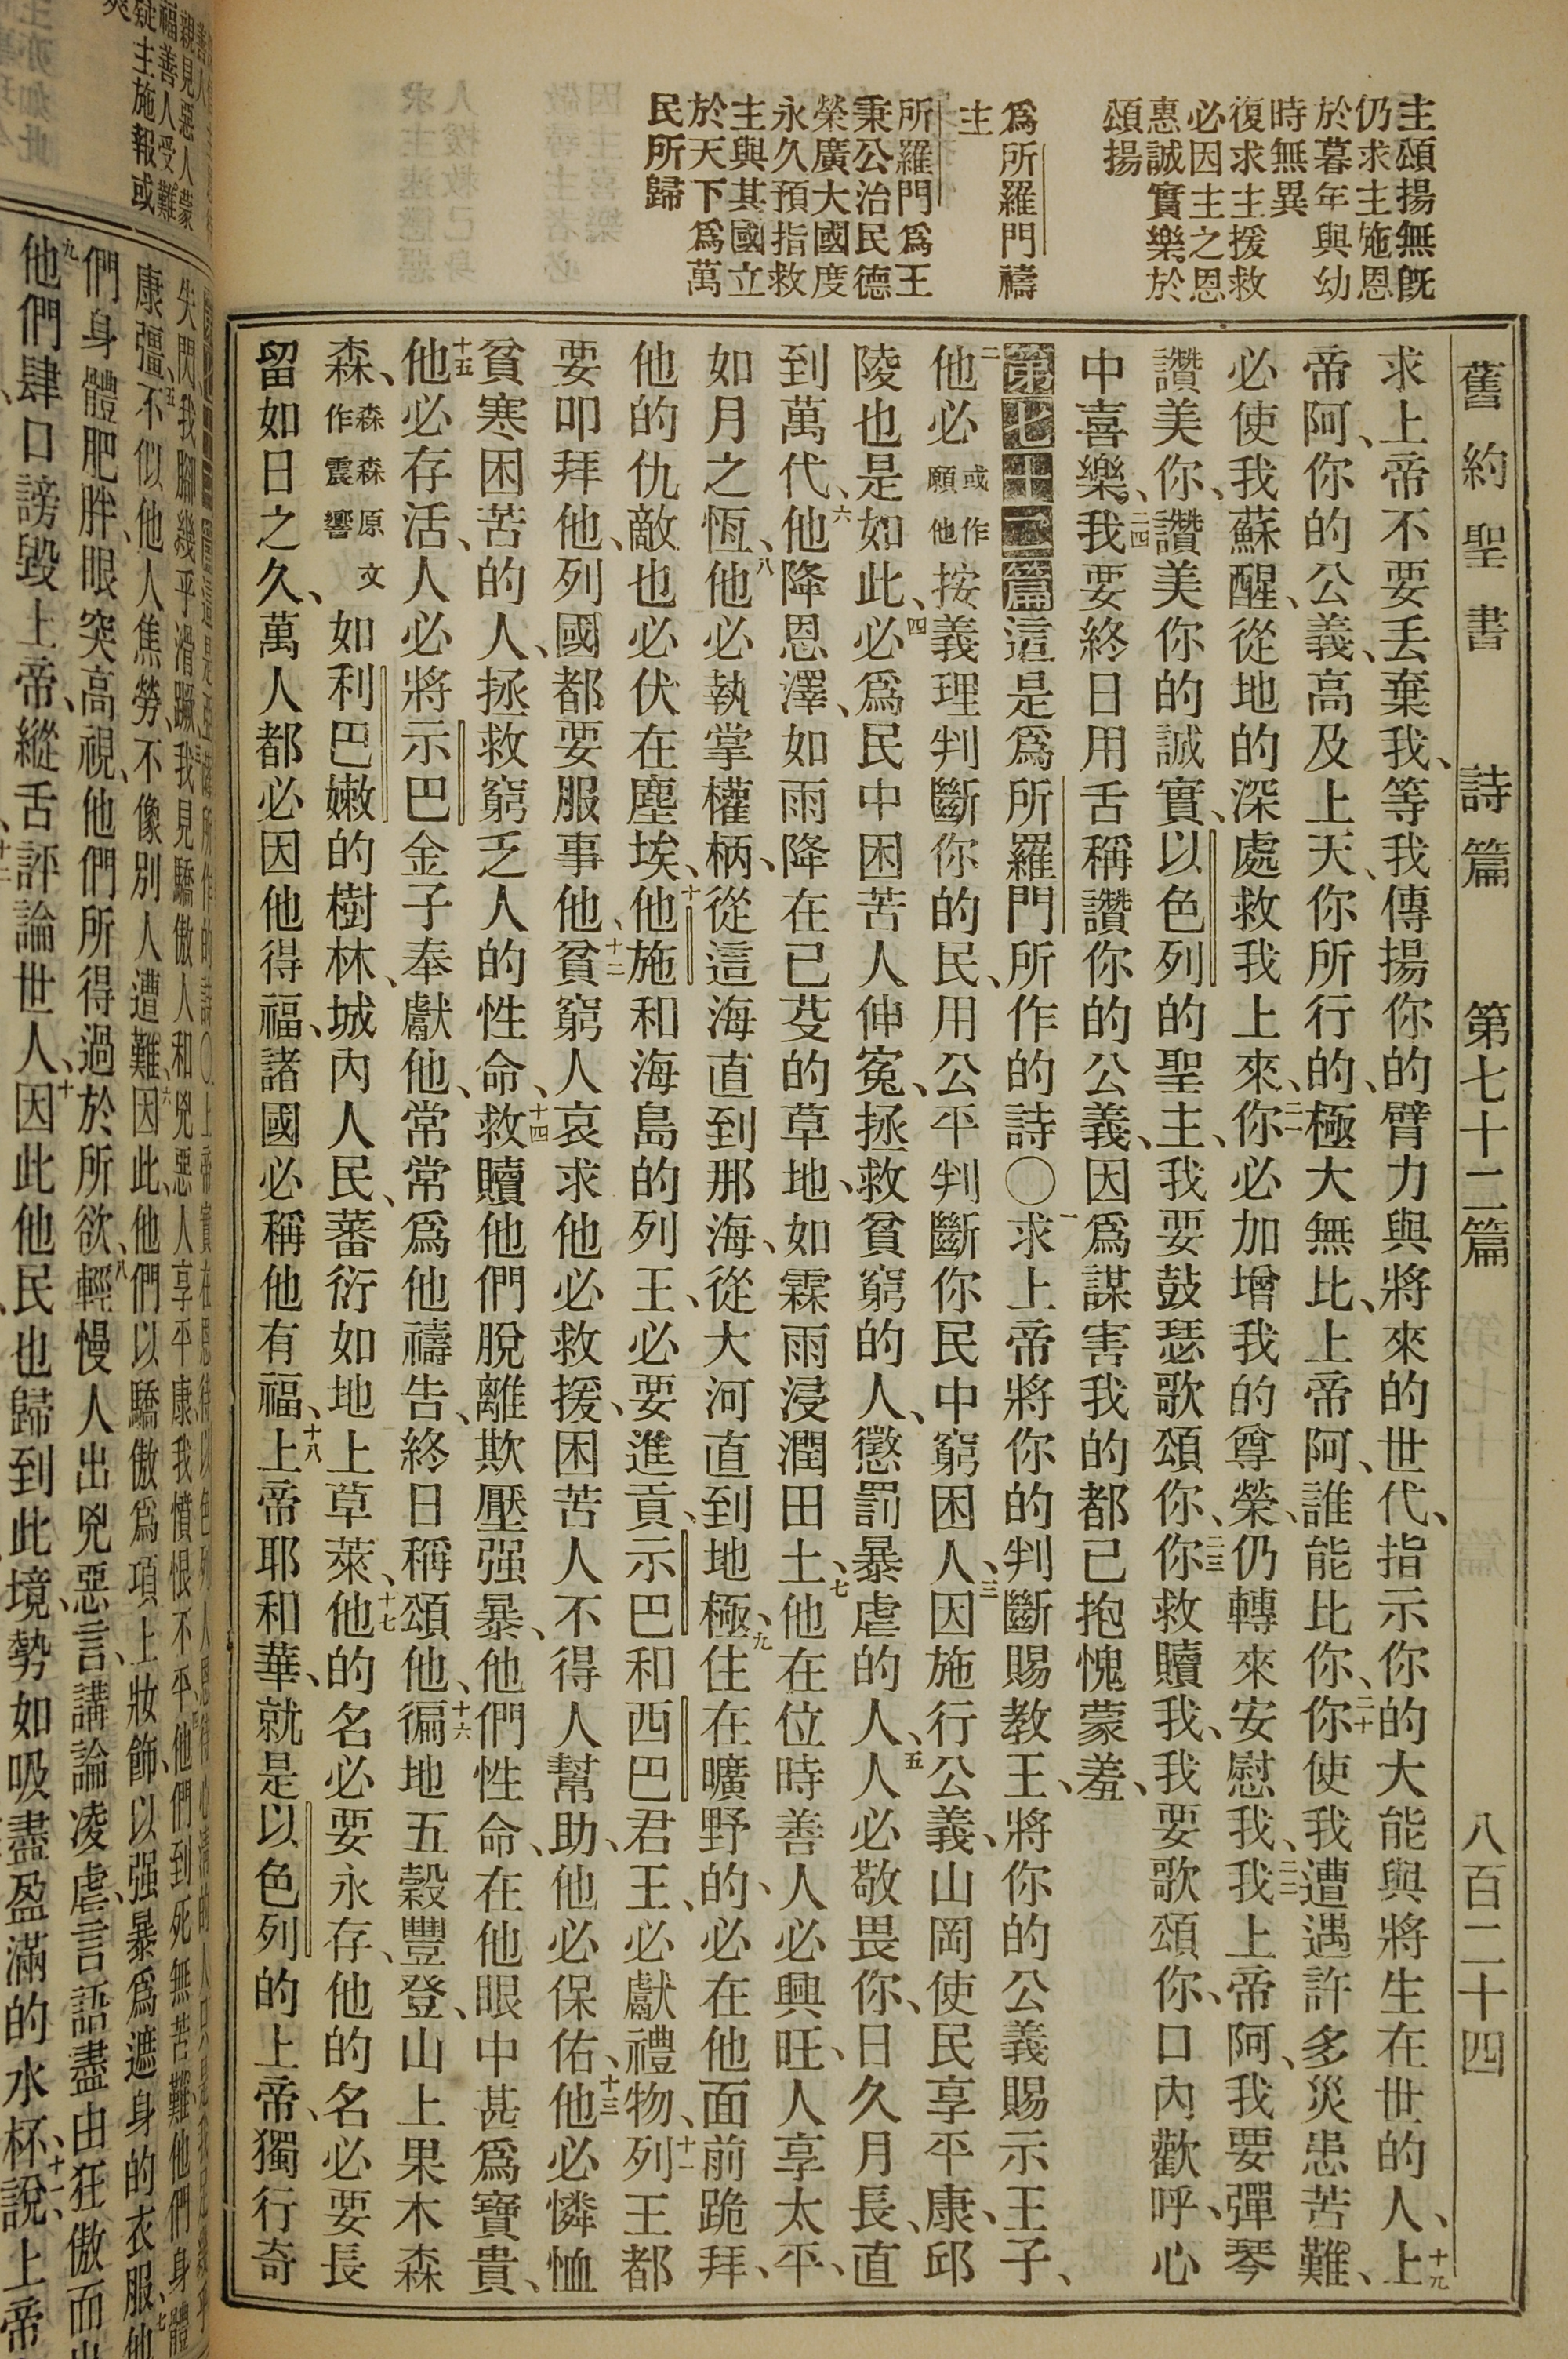 舊約聖書 詩篇 第七十二篇 八百二十四
主頌揚無旣
仍求主施恩
於暮年與幼
時無異
復求主援救
必因主之恩
惠誠實樂於
頌揚
爲所羅門禱
主
所羅門爲王
秉公治民德
榮廣大國度
永久預指救
主與其國立
於天下爲萬
民所歸
求上帝不要丟棄我、等我傳揚你的臂力與將來的世代、指示你的大能與將生在世的人、十九上
帝阿、你的公義、高及上天、你所行的、極大無比、上帝阿、誰能比你、二十你使我遭遇許多災患苦難、
必使我蘇醒、從地的深處救我上來、二一你必加增我的尊榮、仍轉來安慰我、二二我上帝阿、我要彈琴
讚美你、讚美你的誠實、以色列的聖主、我要鼓瑟歌頌你、二三你救贖我、我要歌頌你、口內歡呼、心
中喜樂、二四我要終日用舌稱讚你的公義、因爲謀害我的都已抱愧蒙羞、
第七十二篇 這是爲所羅門所作的詩〇一求上帝將你的判斷賜教王、將你的公義賜示王子、
二他必或作願他按義理判斷你的民、用公平判斷你民中窮困人、三因施行公義、山岡使民享平康、邱
陵也是如此、四必爲民中困苦人伸冤、拯救貧窮的人、懲罰暴虐的人、五人必敬畏你、日久月長、直
到萬代、六他降恩澤、如雨降在已芟的草地、如霖雨浸潤田土、七他在位時善人必興旺、人享太平、
如月之恆、八他必執掌權柄、從這海直到那海、從大河直到地極、九住在曠野的、必在他面前跪拜、
他的仇敵也必伏在塵埃、十他施和海島的列王、必要進貢、示巴和西巴君王、必獻禮物、十一列王都
要叩拜他、列國都要服事他、十二貧窮人哀求他必救援、困苦人不得人幫助、他必保佑、十三他必憐恤
貧寒困苦的人、拯救窮乏人的性命、十四救贖他們脫離欺壓强暴、他們性命、在他眼中甚爲寶貴、
十五他必存活、人必將示巴金子奉獻他、常常爲他禱告、終日稱頌他、十六徧地五穀豐登、山上果木森
森、森森原文作震響如利巴嫩的樹林、城內人民、蕃衍如地上草萊、十七他的名必要永存、他的名必要長
留如日之久、萬人都必因他得福、諸國必稱他有福、十八上帝耶和華、就是以色列的上帝、獨行奇
親見惡人蒙
福善人受難
疑主施報或
失閃、我腳幾乎滑蹶、三我見驕傲人和兇惡人享平康、我憤恨不平、四他們到死無苦難、他們身體
康彊、五不似他人焦勞、不像別人遭難、六因此、他們以驕傲爲項上妝飾、以强暴爲遮身的衣服、七他
們身體肥胖、眼突高視、他們所得過於所欲、八輕慢人出兇惡言、講論凌虐、言語盡由狂傲而出
九他們肆口謗毀上帝、縱舌評論世人、十因此他民也歸到此境、勢如吸盡盈滿的水杯、十一說、上帝